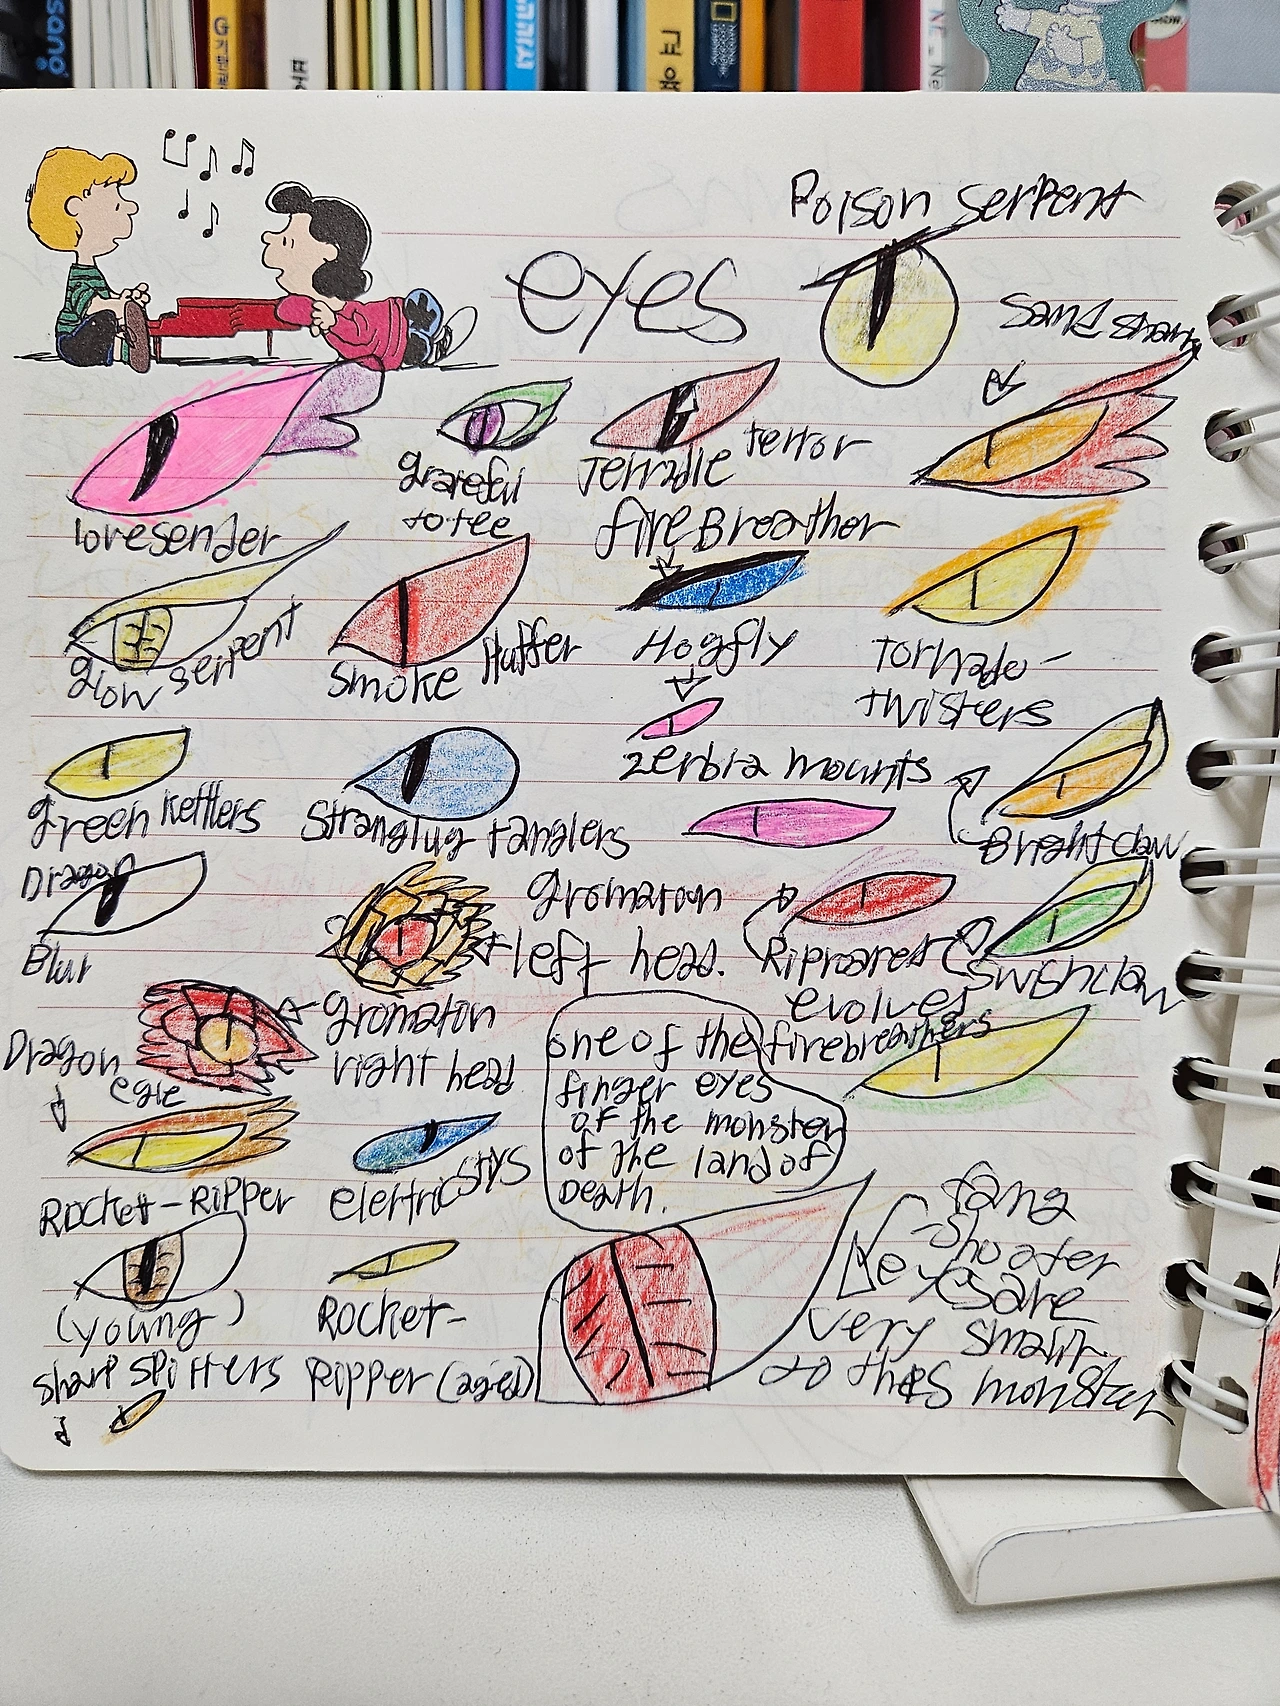 Poison serpent
eyes
Sand shark
lovesender
grateful
to tee
Terrible terror
fire Breather
glow serpent
Smoke Huffer
Hogfly
Tornado-
twisters
zerbia mounts
green kettlers
Stranglug tanglers
Brightclaw
Dragon
Blur
gromaton
left head.
Riproarer
evolves
firebreathers
Swishclaw
gromaton
right head
Dragon
egle
one of the
finger eyes
of the monster
of the land of
Death.
Rocket-Ripper
elertric stys
fang
-shooter
eyes are
very small
to this monster
(young)
sharp spitters
Rocket-
Ripper (aged)